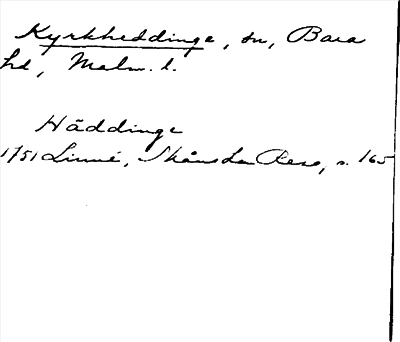 Kyrkheddinge, sn, Bara
hd, Malm. l.
Häddinge
1751 Linné, Skånska Resa, s. 165